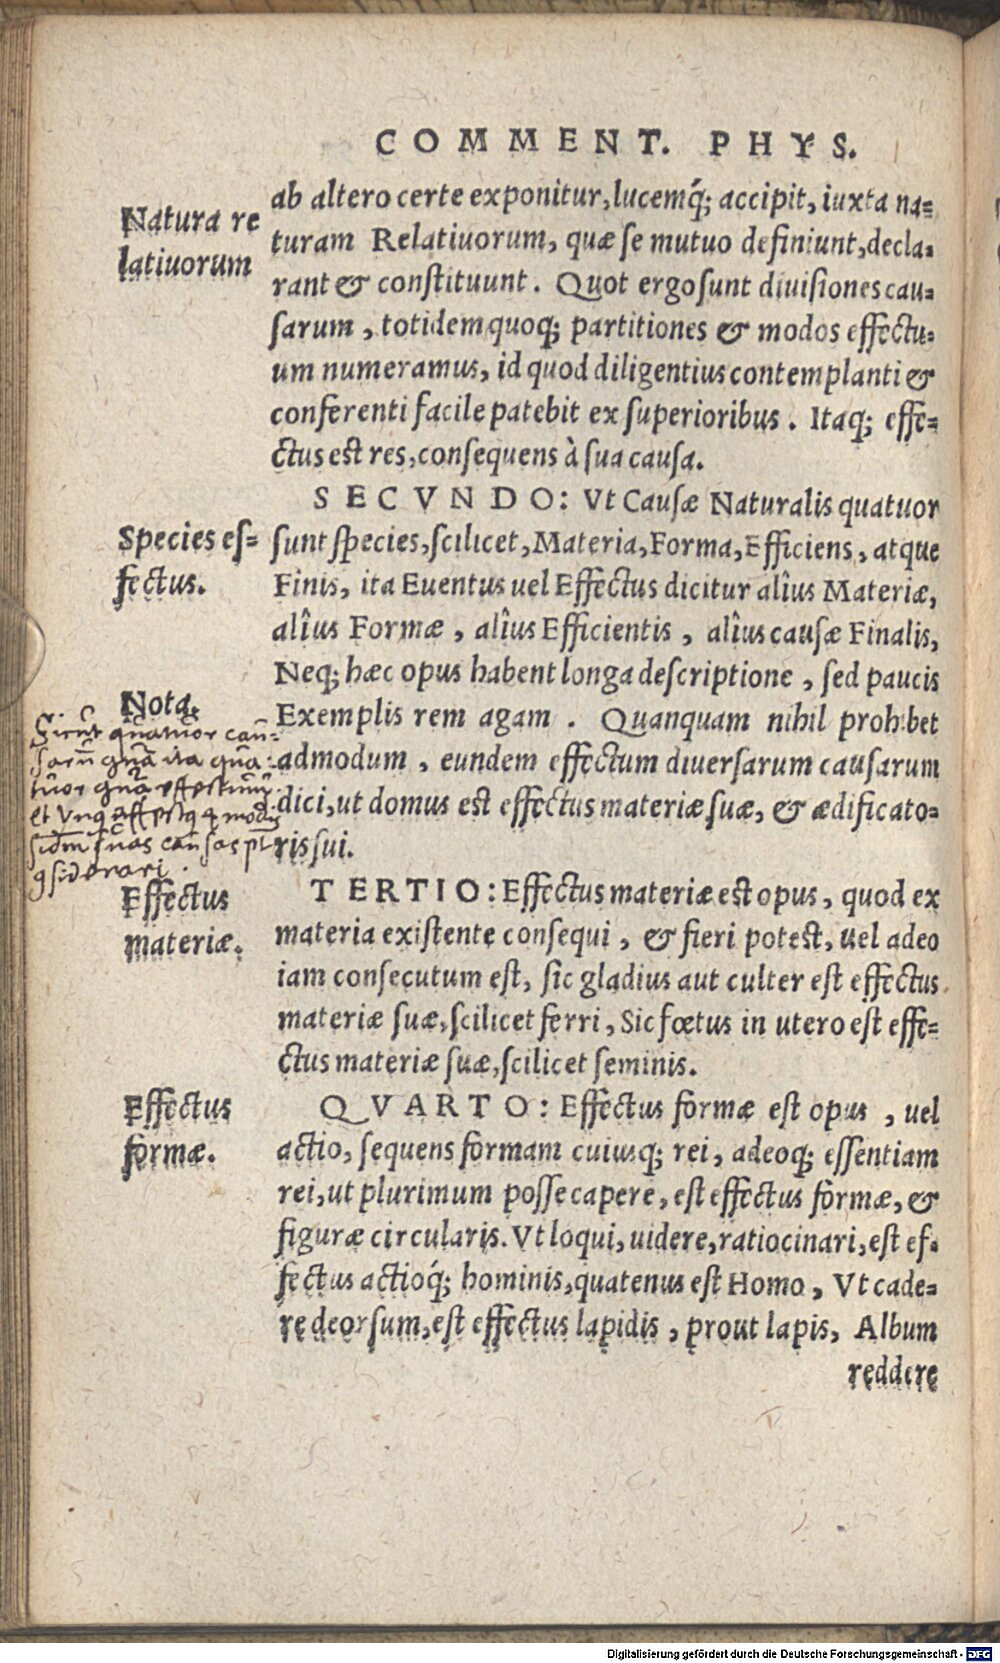 COMMENT. PHYS.
Natura re
latiuorum
ab altero certe exponitur, lucemq́; accipit, iuxta na=
turam Relatiuorum, quæ se mutuo definiunt, decla=
rant & constituunt. Quot ergo sunt diuisiones cau=
sarum, totidem quoq; partitiones & modos effectu=
um numeramus, id quod diligentius contemplanti &
conferenti facile patebit ex superioribus. Itaq; effe=
ctus est res, consequens à sua causa.
Species ef=
fectus.
SECVNDO: Vt Causæ Naturalis quatuor
sunt species, scilicet, Materia, Forma, Efficiens, atque
Finis, ita Euentus uel Effectus dicitur alîus Materiæ,
alîus Formæ, alîus Efficientis, alîus causæ Finalis,
Neq; hæc opus habent longa descriptione, sed paucis
Nota.
Exemplis rem agam. Quanquam nihil prohibet
admodum, eundem effectum diuersarum causarum
dici, ut domus est effectus materiæ suæ, & ædificato=
ris sui.
Sicut quatuor cau=
sarū ita
tuor
et
suas causas
Effectus
materiæ.
TERTIO: Effectus materiæ est opus, quod ex
materia existente consequi, & fieri potest, uel adeo
iam consecutum est, sic gladius aut culter est effectus
materiæ suæ, scilicet ferri, Sic fœtus in utero est effe=
ctus materiæ suæ, scilicet seminis.
Effectus
formæ.
QVARTO: Effectus formæ est opus, uel
actio, sequens formam cuiusq; rei, adeoq; essentiam
rei, ut plurimum posse capere, est effectus formæ, &
figuræ circularis. Vt loqui, uidere, ratiocinari, est ef=
fectus actioq́; hominis, quatenus est Homo, Vt cade=
re deorsum, est effectus lapidis, prout lapis, Album
reddere
Digitalisierung gefördert durch die Deutsche Forschungsgemeinschaft - DFG